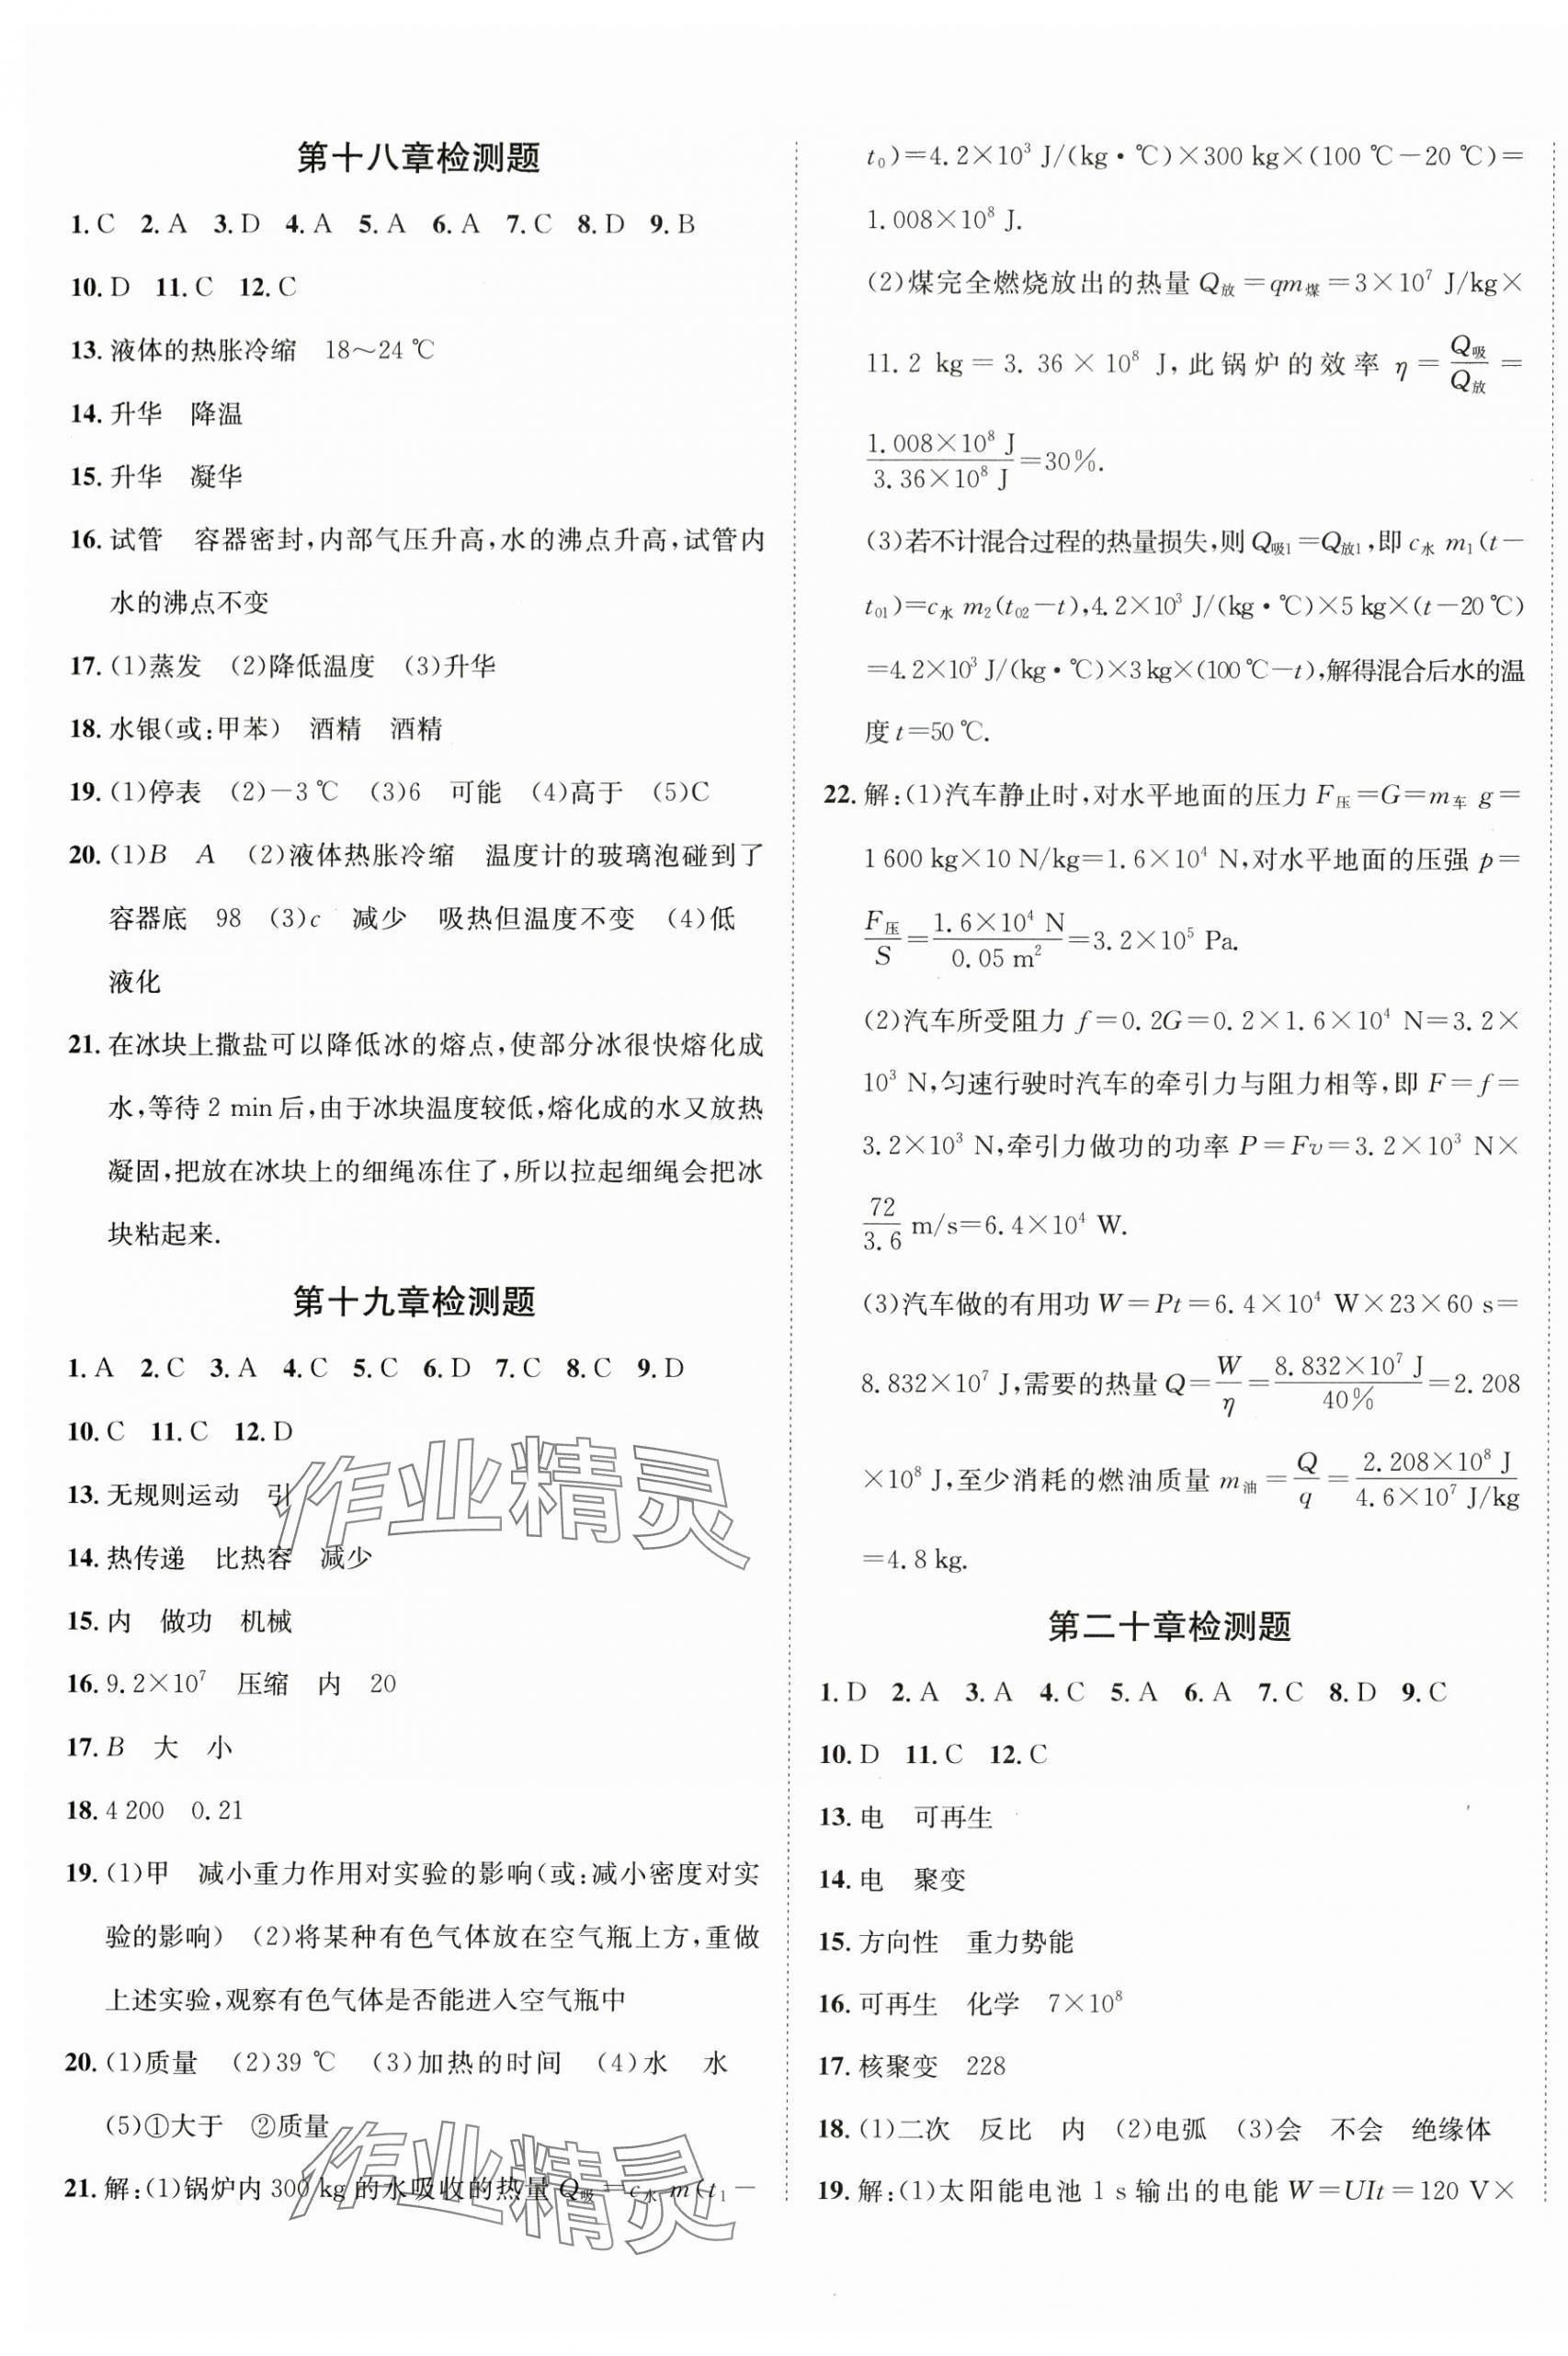 第十八章检测题
1.C 2.A 3.D 4.A 5.A 6.A 7.C 8.D 9.B
10.D 11.C 12.C
13.液体的热胀冷缩 18～24 ℃
14.升华 降温
15.升华 凝华
16.试管 容器密封,内部气压升高,水的沸点升高,试管内
水的沸点不变
17.(1)蒸发 (2)降低温度 (3)升华
18.水银(或:甲苯) 酒精 酒精
19.(1)停表 (2)－3 ℃ (3)6 可能 (4)高于 (5)C
20.(1)B A (2)液体热胀冷缩 温度计的玻璃泡碰到了
容器底 98 (3)c 减少 吸热但温度不变 (4)低
液化
21.在冰块上撒盐可以降低冰的熔点,使部分冰很快熔化成
水,等待2 min后,由于冰块温度较低,熔化成的水又放热
凝固,把放在冰块上的细绳冻住了,所以拉起细绳会把冰
块粘起来.
第十九章检测题
1.A 2.C 3.A 4.C 5.C 6.D 7.C 8.C 9.D
10.C 11.C 12.D
13.无规则运动 引
14.热传递 比热容 减少
15.内 做功 机械
16.9.2×10⁷ 压缩 内 20
17.B 大 小
18.4 200 0.21
19.(1)甲 减小重力作用对实验的影响(或:减小密度对实
验的影响) (2)将某种有色气体放在空气瓶上方,重做
上述实验,观察有色气体是否能进入空气瓶中
20.(1)质量 (2)39 ℃ (3)加热的时间 (4)水 水
(5)①大于 ②质量
21.解:(1)锅炉内300 kg的水吸收的热量Q吸＝c水 m(t₁－
作业精灵
作业精灵
t₀)＝4.2×10³ J/(kg·℃)×300 kg×(100 ℃－20 ℃)＝
1.008×10⁸ J.
(2)煤完全燃烧放出的热量Q放＝qm煤＝3×10⁷ J/kg×
11.2 kg＝3.36×10⁸ J,此锅炉的效率η＝Q吸/Q放＝
1.008×10⁸ J/3.36×10⁸ J＝30%.
(3)若不计混合过程的热量损失,则Q吸1＝Q放1,即c水 m₁(t－
t₀₁)＝c水 m₂(t₀₂－t),4.2×10³ J/(kg·℃)×5 kg×(t－20 ℃)
＝4.2×10³ J/(kg·℃)×3 kg×(100 ℃－t),解得混合后水的温
度t＝50 ℃.
22.解:(1)汽车静止时,对水平地面的压力F压＝G＝m车 g＝
1 600 kg×10 N/kg＝1.6×10⁴ N,对水平地面的压强p＝
F压/S＝1.6×10⁴ N/0.05 m²＝3.2×10⁵ Pa.
(2)汽车所受阻力f＝0.2G＝0.2×1.6×10⁴ N＝3.2×
10³ N,匀速行驶时汽车的牵引力与阻力相等,即F＝f＝
3.2×10³ N,牵引力做功的功率P＝Fv＝3.2×10³ N×
72/3.6 m/s＝6.4×10⁴ W.
(3)汽车做的有用功W＝Pt＝6.4×10⁴ W×23×60 s＝
8.832×10⁷ J,需要的热量Q＝W/η＝8.832×10⁷ J/40%＝2.208
×10⁸ J,至少消耗的燃油质量m油＝Q/q＝2.208×10⁸ J/4.6×10⁷ J/kg
＝4.8 kg.
第二十章检测题
1.D 2.A 3.A 4.C 5.A 6.A 7.C 8.D 9.C
10.D 11.C 12.C
13.电 可再生
14.电 聚变
15.方向性 重力势能
16.可再生 化学 7×10⁸
17.核聚变 228
18.(1)二次 反比 内 (2)电弧 (3)会 不会 绝缘体
19.解:(1)太阳能电池1 s输出的电能W＝UIt＝120 V×